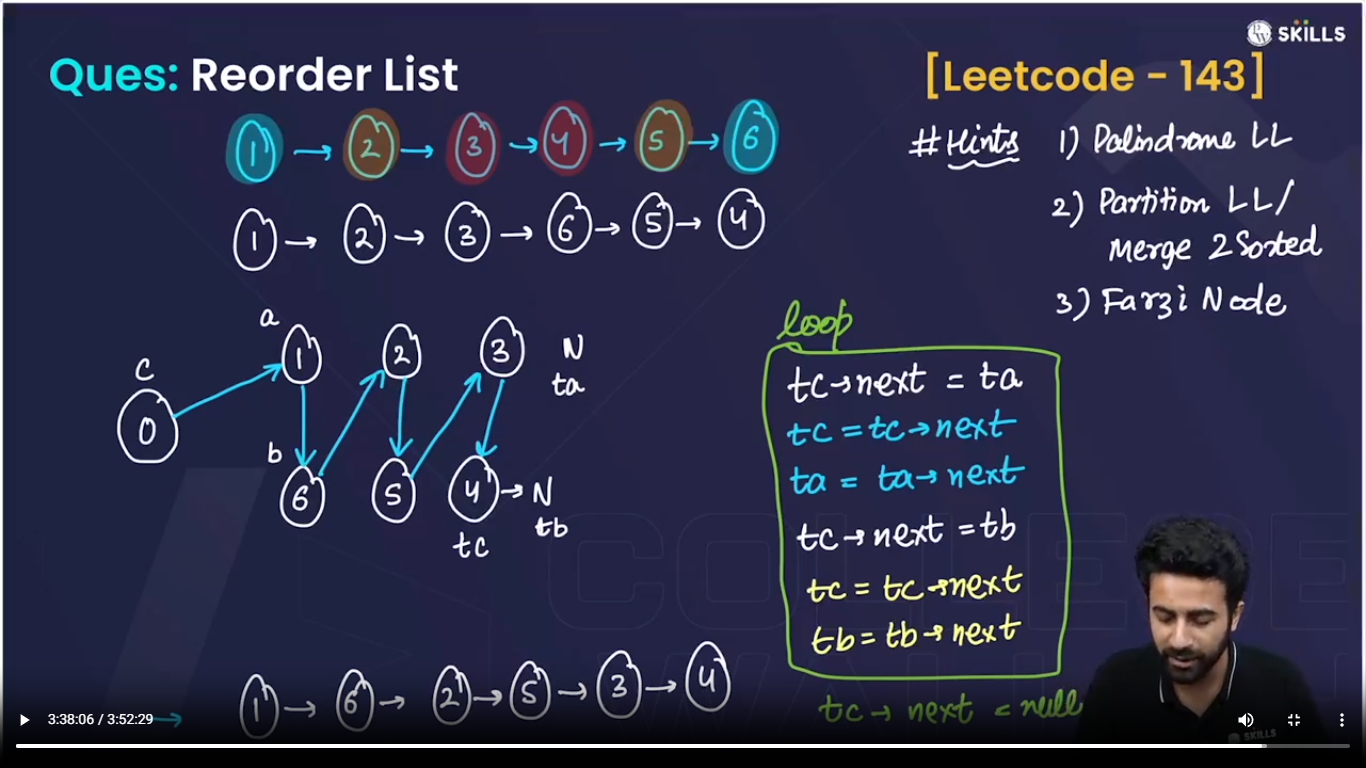 SKILLS
Ques: Reorder List
[Leetcode - 143]
1 → 2 → 3 → 4 → 5 → 6
# Hints
1) Palindrome LL
2) Partition LL/
Merge 2 Sorted
3) Farzi Node
1 → 2 → 3 → 6 → 5 → 4
a
1 2 3 N
ta
c
0
b
6 5 4 → N
tb
tc
loop
tc→next = ta
tc = tc→next
ta = ta→next
tc→next = tb
tc = tc→next
tb = tb→next
tc→next = null
1 → 6 → 2 → 5 → 3 → 4
3:38:06 / 3:52:29
SKILLS